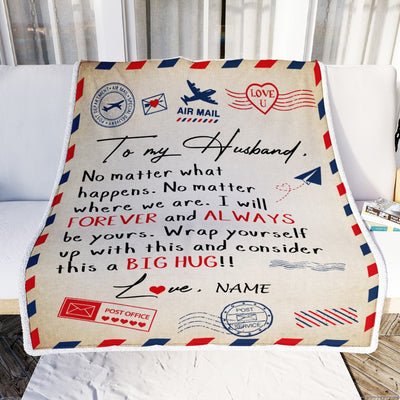 AIR MAIL
LOVE
U
To my Husband,
No matter what
happens. No matter
where we are. I will
FOREVER and ALWAYS
be yours. Wrap yourself
up with this and consider
this a BIG HUG!!
Love, NAME
POST OFFICE
POST
SERVICE